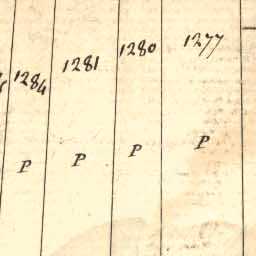 1284 1281 1280 1277
P P P P